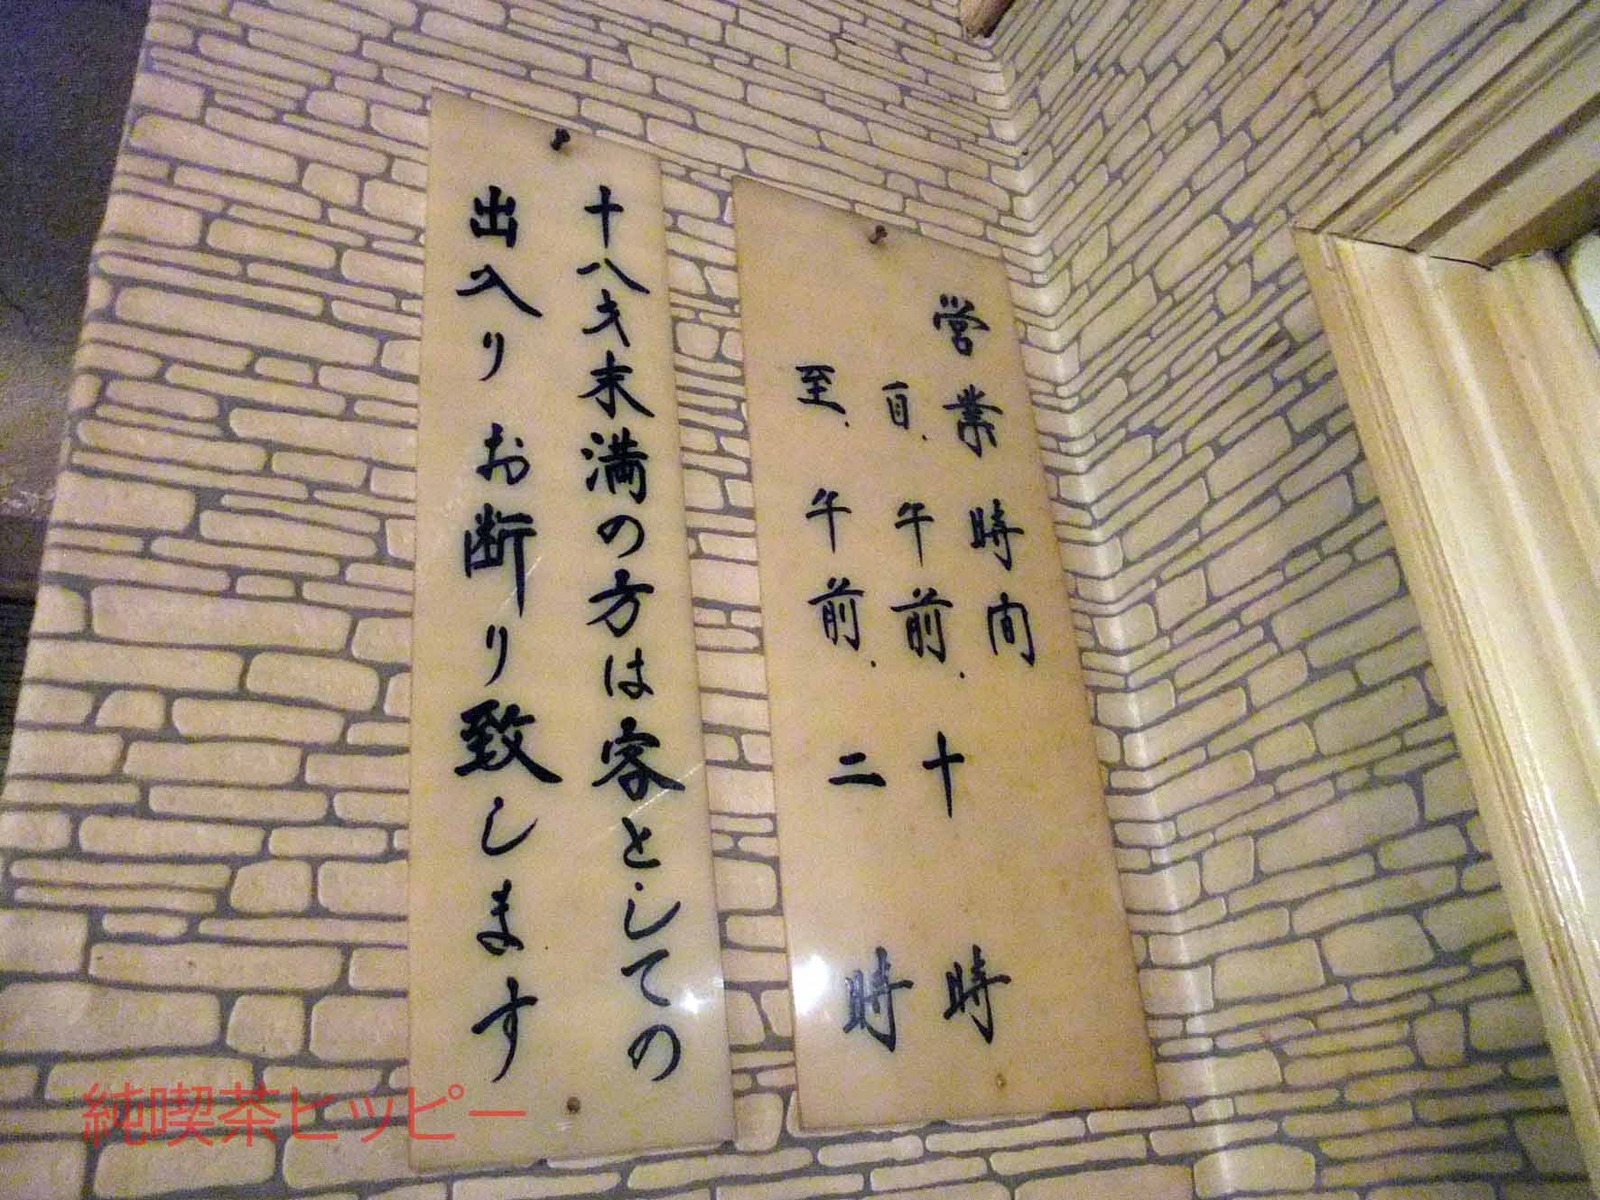 営業時間
自.午前.十時
至.午前.二時
十八才末満の方は客としての
出入りお断り致します
純喫茶ヒッピー